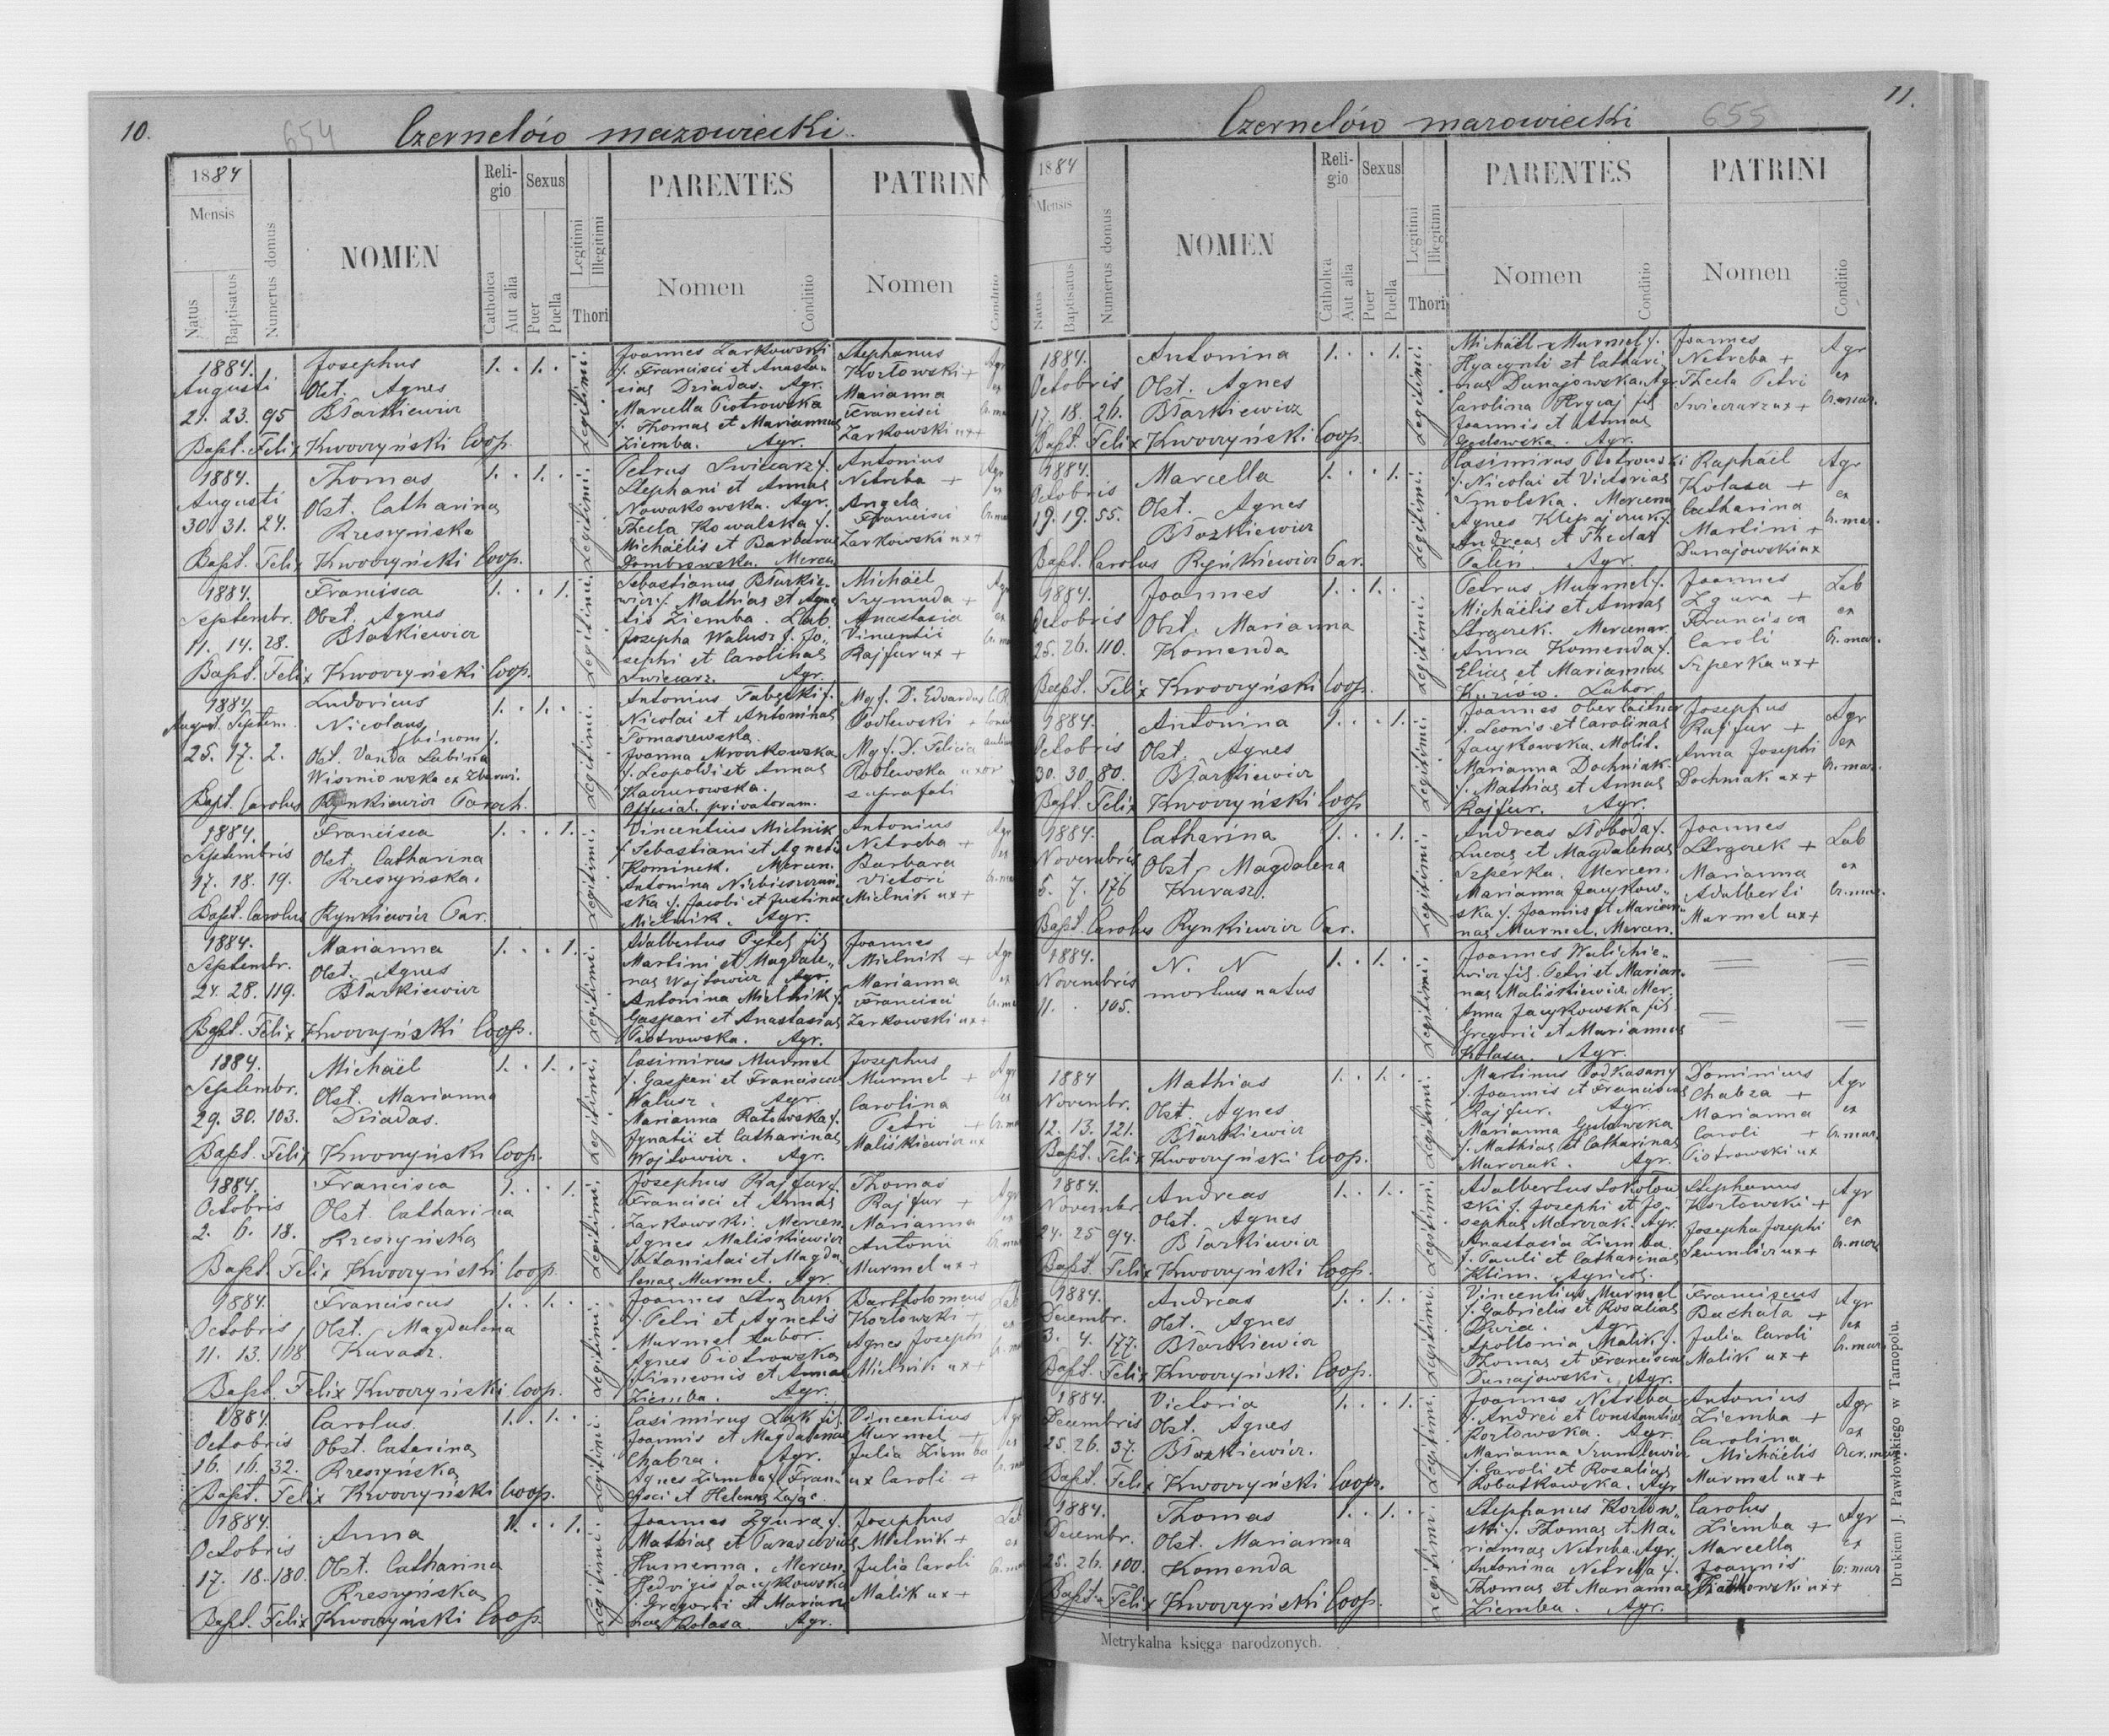 10.
654
Czernelów mazowiecki
1884
Mensis
Natus
Baptisatus
Numerus domus
NOMEN
Religio
Catholica
Aut alia
Sexus
Puer
Puella
Legitimi
Illegitimi
Thori
PARENTES
Nomen
Conditio
PATRINI
Nomen
Conditio
1884.
Augusti
21. 23. 95
Josephus
Obst. Agnes
Błaszkiewicz
1. . 1. .
Legitimi.
Joannes Żarkowski
f. Francisci et Anasta-
siae Dziadas. Agr.
Marcella Piotrowska
f. Thomae et Mariannae
Ziemba. Agr.
Stephanus
Kozłowski +
Marianna
Francisci
Żarkowski ux +
Bapt. Felix Kwoczyński Coop.
1884.
Augusti
30. 31. 24.
Thomas
Obst. Catharina
Kreszyńska
1. . 1. .
Legitimi.
Petrus Swiecarz f.
Stephani et Annae
Nowakowska. Agr.
Thecla Kowalska f.
Michaëlis et Barbarae
Dombrowska. Mercen.
Antonius
Netreba +
Angela
Francisci
Żarkowski ux +
Bapt. Felix Kwoczyński Coop.
1884.
Septembr.
11. 14. 28.
Francisca
Obst. Agnes
Błaszkiewicz
1. . . 1.
Legitimi.
Sebastianus Błaszkie-
wicz f. Mathiae et Agne-
tis Ziemba. Lab.
Josepha Walusz f. Jo-
sephi et Carolinae
Swiecarz. Agr.
Michaël
Szymuda +
Anastasia
Vincentii
Rajfur ux +
Bapt. Felix Kwoczyński Coop.
1884
August. Septem.
25. 17. 2.
Ludovicus
Nicolaus
(binom).
Obst. Vanda Lubina
Wisniowska ex Zbaraż.
1. . 1. .
Legitimi.
Antonius
Nicolai et Antoninae
Tomaszewska.
Joanna Mroczkowska
f. Leopoldi et Annae
Kaczurowska.
Official. privatorum.
Mg f. D. Edvardus
Podlewski +
Mg f. D. Felicia
Podlewska uxor
suprafati
Bapt. Carolus Rynkiewicz Paroch.
1884.
Septembris
17. 18. 19.
Francisca
Obst. Catharina
Kreszyńska.
1. . . 1.
Legitimi.
Vincentius Mielnik
f. Sebastiani et Agnetis
Kominek. Mercen.
Antonina
ska f. Jacobi et Justinae
Mielnik. Agr.
Antonius
Netreba +
Barbara
Victori
Mielnik ux +
Bapt. Carolus Rynkiewicz Par.
1884.
Septembr.
24. 28. 119.
Marianna
Obst. Agnes
Błaszkiewicz
1. . . 1.
Legitimi.
Adalbertus Pytel fil
Martini et Magdale-
nae Wojtowicz Agr
Antonina Mielnik f.
Gaspari et Anastasiae
Piotrowska. Agr.
Joannes
Mielnik +
Marianna
Francisci
Żarkowski ux +
Bapt. Felix Kwoczyński Coop.
1884.
Septembr.
29. 30. 103.
Michaël
Obst. Marianna
Dziadas.
1. . 1. .
Legitimi.
Casimirus Murmel
f. Gaspari et Franciscae
Walusz. Agr.
Marianna Ratowska f.
Ignatii et Catharinae
Wojtowicz. Agr.
Josephus
Murmel +
Carolina
Petri +
Maliśkiewicz ux
Bapt. Felix Kwoczyński Coop.
1884.
Octobris
2. 6. 18.
Francisca
Obst. Catharina
Kreszyńska
1. . . 1.
Legitimi.
Josephus Rajfur f.
Francisci et Annae
Żarkowski. Mercen.
Agnes Maliśkiewicz
f. Stanislai et Magda
lenae Murmel. Agr.
Thomas
Rajfur +
Marianna
Antonii
Murmel ux +
Bapt. Felix Kwoczyński Coop.
1884.
Octobris
11. 13. 118
Franciscus
Obst. Magdalena
Kurasz.
1. . 1. .
Legitimi.
Joannes
f. Petri et Agnetis
Murmel Labor.
Agnes Piotrowska
f. Simeonis et Annae
Ziemba. Agr.
Bartholomeus
Kozłowski +
Agnes Josephi
Mielnik ux +
Bapt. Felix Kwoczyński Coop.
1884.
Octobris
16. 16. 32.
Carolus.
Obst. Catarina
Kreszyńska
1. . 1. .
Legitimi.
Casimirus Luk fil.
Joannis et Magdalenae
Chabza. Agr.
Agnes Ziemba f. Fran-
cisci et Helenae Zając.
Vincentius
Murmel +
Julia Ziemba
ux Caroli +
Bapt. Felix Kwoczyński Coop.
1884.
Octobris
17. 18. 180.
Anna
Obst. Catharina
Kreszyńska
1. . . 1.
Legitimi.
Joannes Zgura f.
Mathiae et Parasceviae
Humenna. Mercen.
Hedvigis Jacykowska
f. Gregorii et Marian-
nae Kolasa. Agr.
Josephus
Mielnik +
Julia Caroli
Malik ux +
Bapt. Felix Kwoczyński Coop.
11.
Czernelów mazowiecki
655
1884
Mensis
Natus
Baptisatus
Numerus domus
NOMEN
Religio
Catholica
Aut alia
Sexus
Puer
Puella
Legitimi
Illegitimi
Thori
PARENTES
Nomen
Conditio
PATRINI
Nomen
Conditio
1884.
Octobris
17. 18. 26.
Antonina
Obst. Agnes
Błaszkiewicz
1. . . 1.
Legitimi.
Michaël Murmel f.
Hyacynti et Cathari-
nae Dunajowska. Agr.
Carolina Hrycaj fil
Joannis et Annae
Agr.
Joannes
Netreba +
Thecla Petri
Swiecarz ux +
Agr
ex
Cz. maz.
Bapt. Felix Kwoczyński Coop.
1884.
Octobris
19. 19. 55.
Marcella
Obst. Agnes
Błaszkiewicz
1. . . 1.
Legitimi.
Casimirus Piotrowski
f. Nicolai et Victoriae
Smolska. Mercena
Agnes Klepajczuk f.
Andreae et Theclae
Agr.
Raphaël
Kolasa +
Catharina
Martini +
Dunajowski ux
Agr
ex
Cz. maz.
Bapt. Carolus Rynkiewicz Par.
1884.
Octobris
25. 26. 110.
Joannes
Obst. Marianna
Komenda
1. . 1. .
Legitimi.
Petrus Murmel f.
Michaëlis et Annae
Mercenar.
Anna Komenda f.
Eliae et Mariannae
Labor.
Joannes
Zgura +
Francisca
Caroli
Szperka ux +
Lab
ex
Cz. maz.
Bapt. Felix Kwoczyński Coop.
1884.
Octobris
30. 30. 80.
Antonina
Obst. Agnes
Błaszkiewicz
1. . . 1.
Legitimi.
Joannes Oberlaitner
f. Leonis et Carolinae
Jacykowska. Molit.
Marianna Dochniak
f. Mathiae et Annae
Rajfur. Agr.
Josephus
Rajfur +
Anna Josephi
Dochniak ux +
Agr
ex
Cz. maz.
Bapt. Felix Kwoczyński Coop
1884.
Novembris
6. 7. 176
Catharina
Obst. Magdalena
Kurasz.
1. . . 1.
Legitimi.
Andreas Słoboda f.
Lucae et Magdalenae
Szperka. Mercen.
Marianna Jacykow-
ska f. Joannis et Marian-
nae Murmel. Mercen.
Joannes
+
Marianna
Adalberti
Murmel ux +
Lab
ex
Cz. maz.
Bapt. Carolus Rynkiewicz Par.
1884.
Novembris
11. . 105.
N. N
mortuus natus
1. . 1. .
Legitimi.
Joannes Walichie-
wicz fil. Petri et Marian-
nae Maliśkiewicz. Mer.
Anna Jacykowska fil
Gregorii et Mariannae
Kolasa. Agr.
1884
Novembr.
12. 13. 121.
Mathias
Obst. Agnes
Błaszkiewicz
1. . 1. .
Legitimi.
Martinus Podkasany
f. Joannis et Franciscae
Rajfur. Agr.
Marianna Gulowska
f. Mathiae et Catharinae
Marczak. Agr.
Dominicus
Chabza +
Marianna
Caroli +
Piotrowski ux
Agr
ex
Cz. maz.
Bapt. Felix Kwoczyński Coop.
1884.
Novembr
24. 25 94.
Andreas
Obst. Agnes
Błaszkiewicz
1. . 1. .
Legitimi.
Adalbertus Sokołow
ski f. Josephi et Jo-
sephae Marczak. Agr.
Anastasia Ziemba
f. Pauli et Catharinae
Klim. Agricol.
Stephanus
Kozłowski +
Josepha Josephi
Szumlicz ux +
Agr
ex
Cz. maz.
Bapt. Felix Kwoczyński Coop.
1884.
Decembr.
3. 4. 177.
Andreas
Obst. Agnes
Błaszkiewicz
1. . 1. .
Legitimi.
Vincentius Murmel
f. Gabrielis et Rosaliae
Agr
Apollonia Malik f.
Thomae et Franciscae
Dunajowski. Agr.
Franciscus
Buchata +
Julia Caroli
Malik ux +
Agr
ex
Cz. maz.
Bapt. Felix Kwoczyński Coop.
1884.
Decembris
25. 26. 37.
Victoria
Obst. Agnes
Błaszkiewicz.
1. . . 1.
Legitimi.
Joannes Netreba
f. Andrei et Constantiae
Kozłowska. Agr.
Marianna Szumlewicz
f. Caroli et Rosaliae
Robutkowska. Agr
Antonius
Ziemba +
Carolina
Michaëlis
Murmel ux +
Agr
ex
Czer. maz.
Bapt. Felix Kwoczyński Coop.
1884.
Decembr.
25. 26. 100.
Thomas
Obst. Marianna
Komenda
1. . 1. .
Legitimi.
Stephanus Kozłow-
ski f. Thomae et Ma-
riannae Netreba. Agr.
Antonina Netreba f.
Thomae et Mariannae
Ziemba. Agr.
Carolus
Ziemba +
Marcella
Joannis
ux +
Agr
ex
Cz. maz
Bapt. Felix Kwoczyński Coop.
Metrykalna księga narodzonych.
Drukiem J. Pawłowskiego w Tarnopolu.